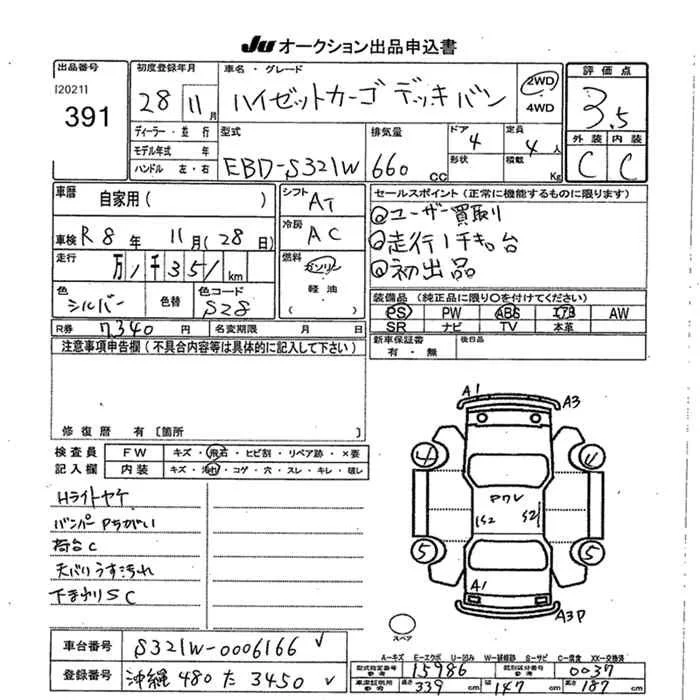 JU オークション出品申込書
出品番号
120211
391
初度登録年月
28年 11月
車名・グレード
ハイゼットカーゴ デッキバン
2WD
4WD
評価点
3.5
外装 内装
C C
ディーラー・並行
モデル年式 年
ハンドル 左・右
型式
EBD-S321W
排気量
660 CC
ドア 4
形状
定員 4人
積載 Kg
車歴 自家用( )
車検 R8年 11月(28日)
走行 万1千351 km
色 シルバー
色替
色コード S28
シフト AT
冷房 AC
燃料 ガソリン
軽油
( )
セールスポイント(正常に機能するものに限ります)
◎ユーザー買取り
◎走行1千キロ台
◎初出品
装備品(純正品に限り〇を付けてください)
PS PW ABS エアB AW
SR ナビ TV 本革
新車保証書 有・無
後日品
R券 7340円 名変期限 月 日
注意事項申告欄(不具合内容等は具体的に記入して下さい)
修復歴 有〔箇所 〕
検査員記入欄
FW キズ・飛石・ヒビ割・リペア跡・×要
内装 キズ・汚れ・コゲ・穴・スレ・キレ・壊レ
Hライトヤケ
バンパーPちがい
荷台C
天バリうす汚れ
下まわりSC
A1
A3
4
4
PワV
S2
S2
5
5
A1
A3P
スペア
車台番号 S321W-0006166
登録番号 沖縄 480 た 3450
A-キズ E-エクボ U-凹み W-補修跡 S-サビ C-腐食 XX-交換済
型式指定番号 参考 15986
類別区分番号 参考 0037
車車証明用 参考 長さ 339cm 幅 147cm 高さ 187cm